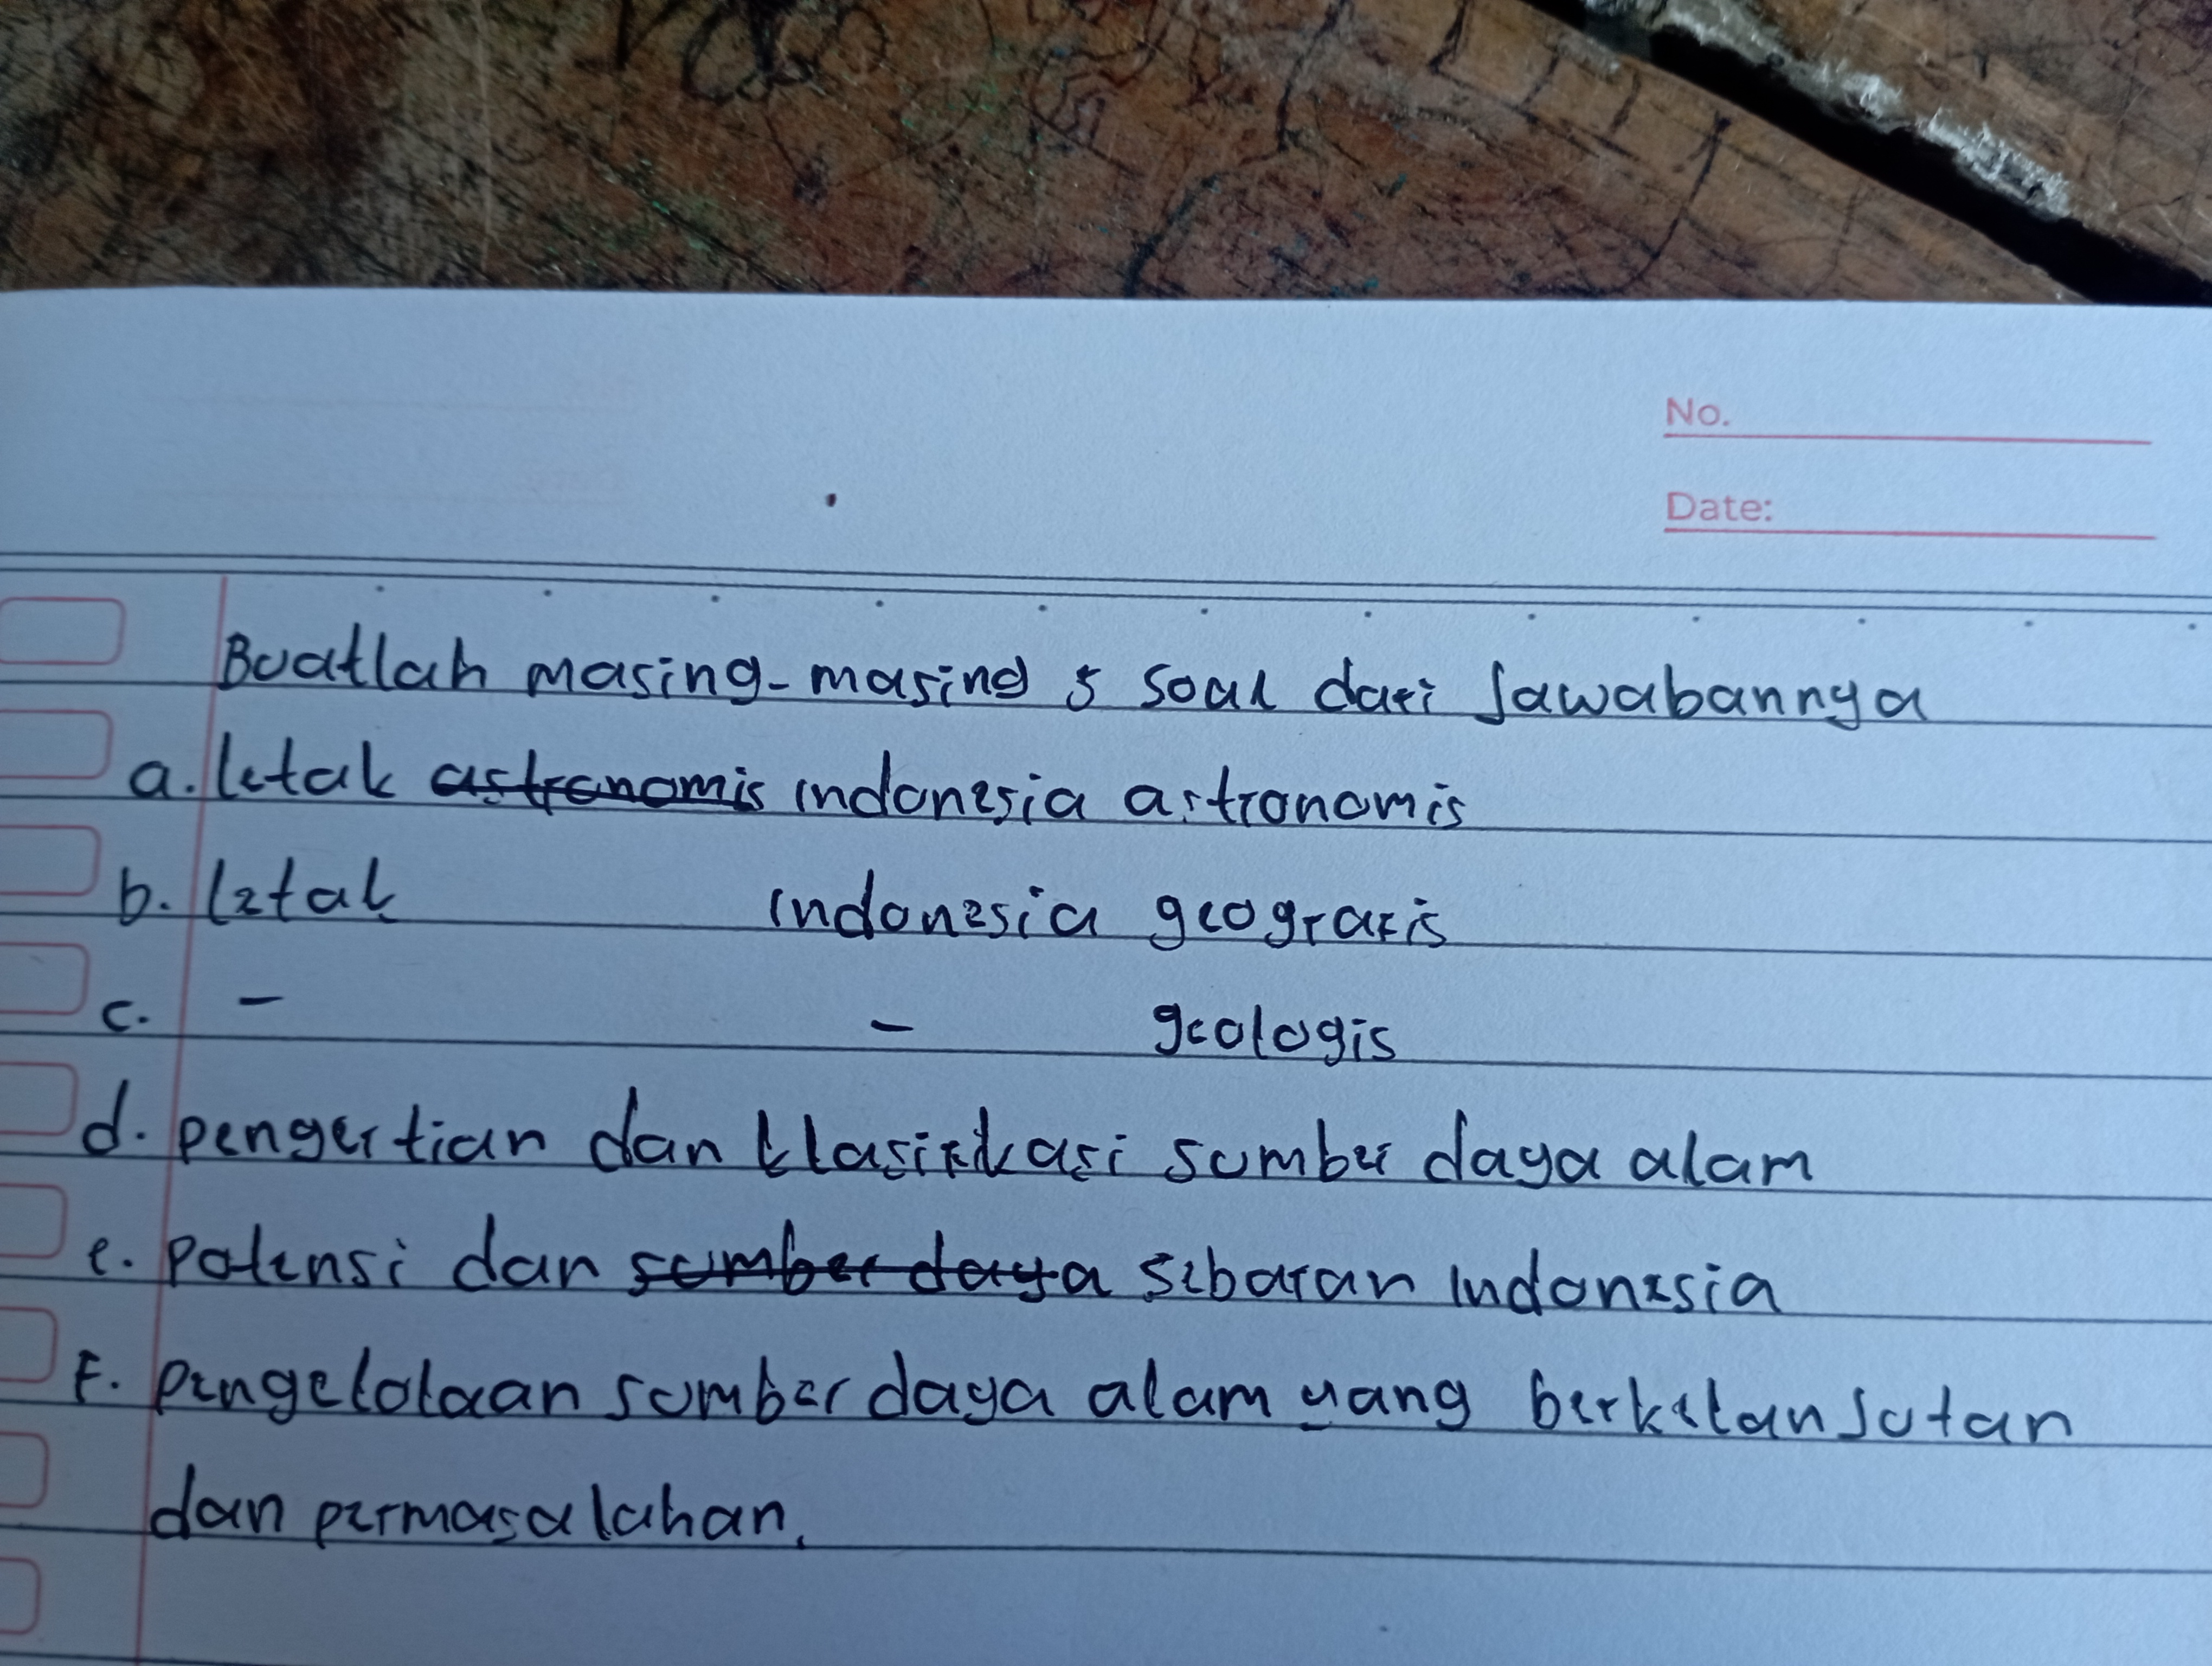 No.
Date:
Buatlah masing-masing 5 soal dari jawabannya
a. letak astronomis indonesia astronomis
b. letak indonesia geografis
c. - - geologis
d. pengertian dan klasifikasi sumber daya alam
e. potensi dan sumber daya sebaran indonesia
f. pengelolaan sumber daya alam yang berkelanjutan
dan permasalahan.